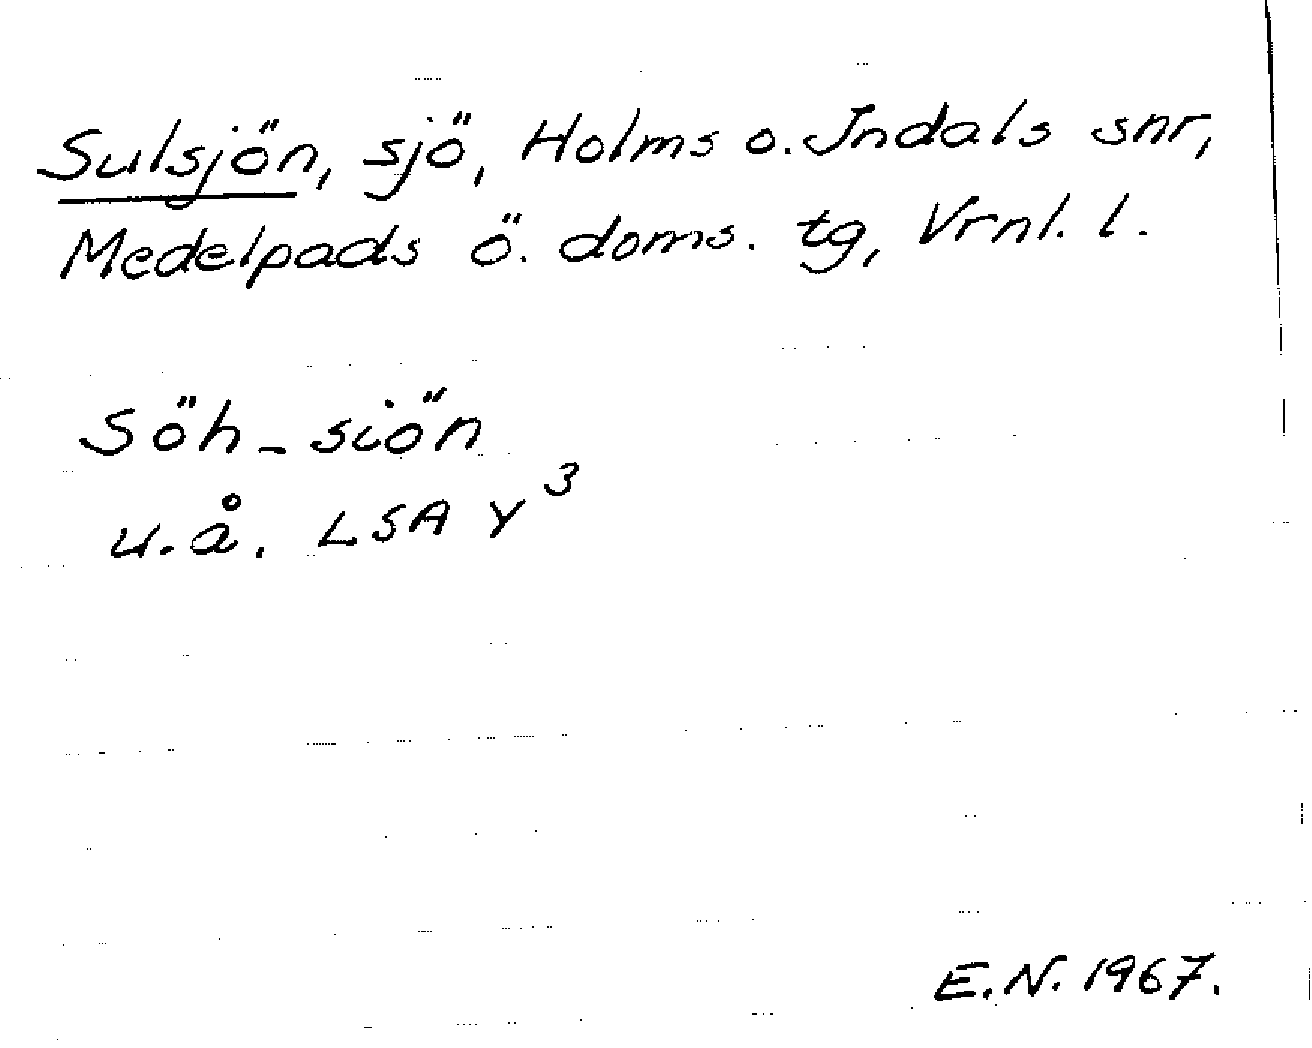 Sulsjön, sjö, Holms o. Indals snr,
Medelpads ö. doms. tg, Vrnl. l.
Söh-siön
u.å. LSA Y³
E.N. 1967.